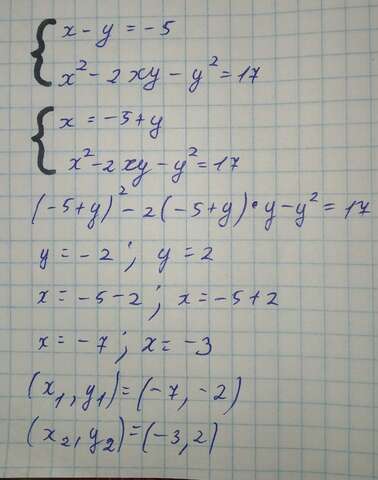 x - y = -5
x² - 2xy - y² = 17
x = -5 + y
x² - 2xy - y² = 17
(-5+y)² - 2(-5+y)·y - y² = 17
y = -2 ; y = 2
x = -5 - 2 ; x = -5 + 2
x = -7 ; x = -3
(x₁, y₁) = (-7, -2)
(x₂, y₂) = (-3, 2)